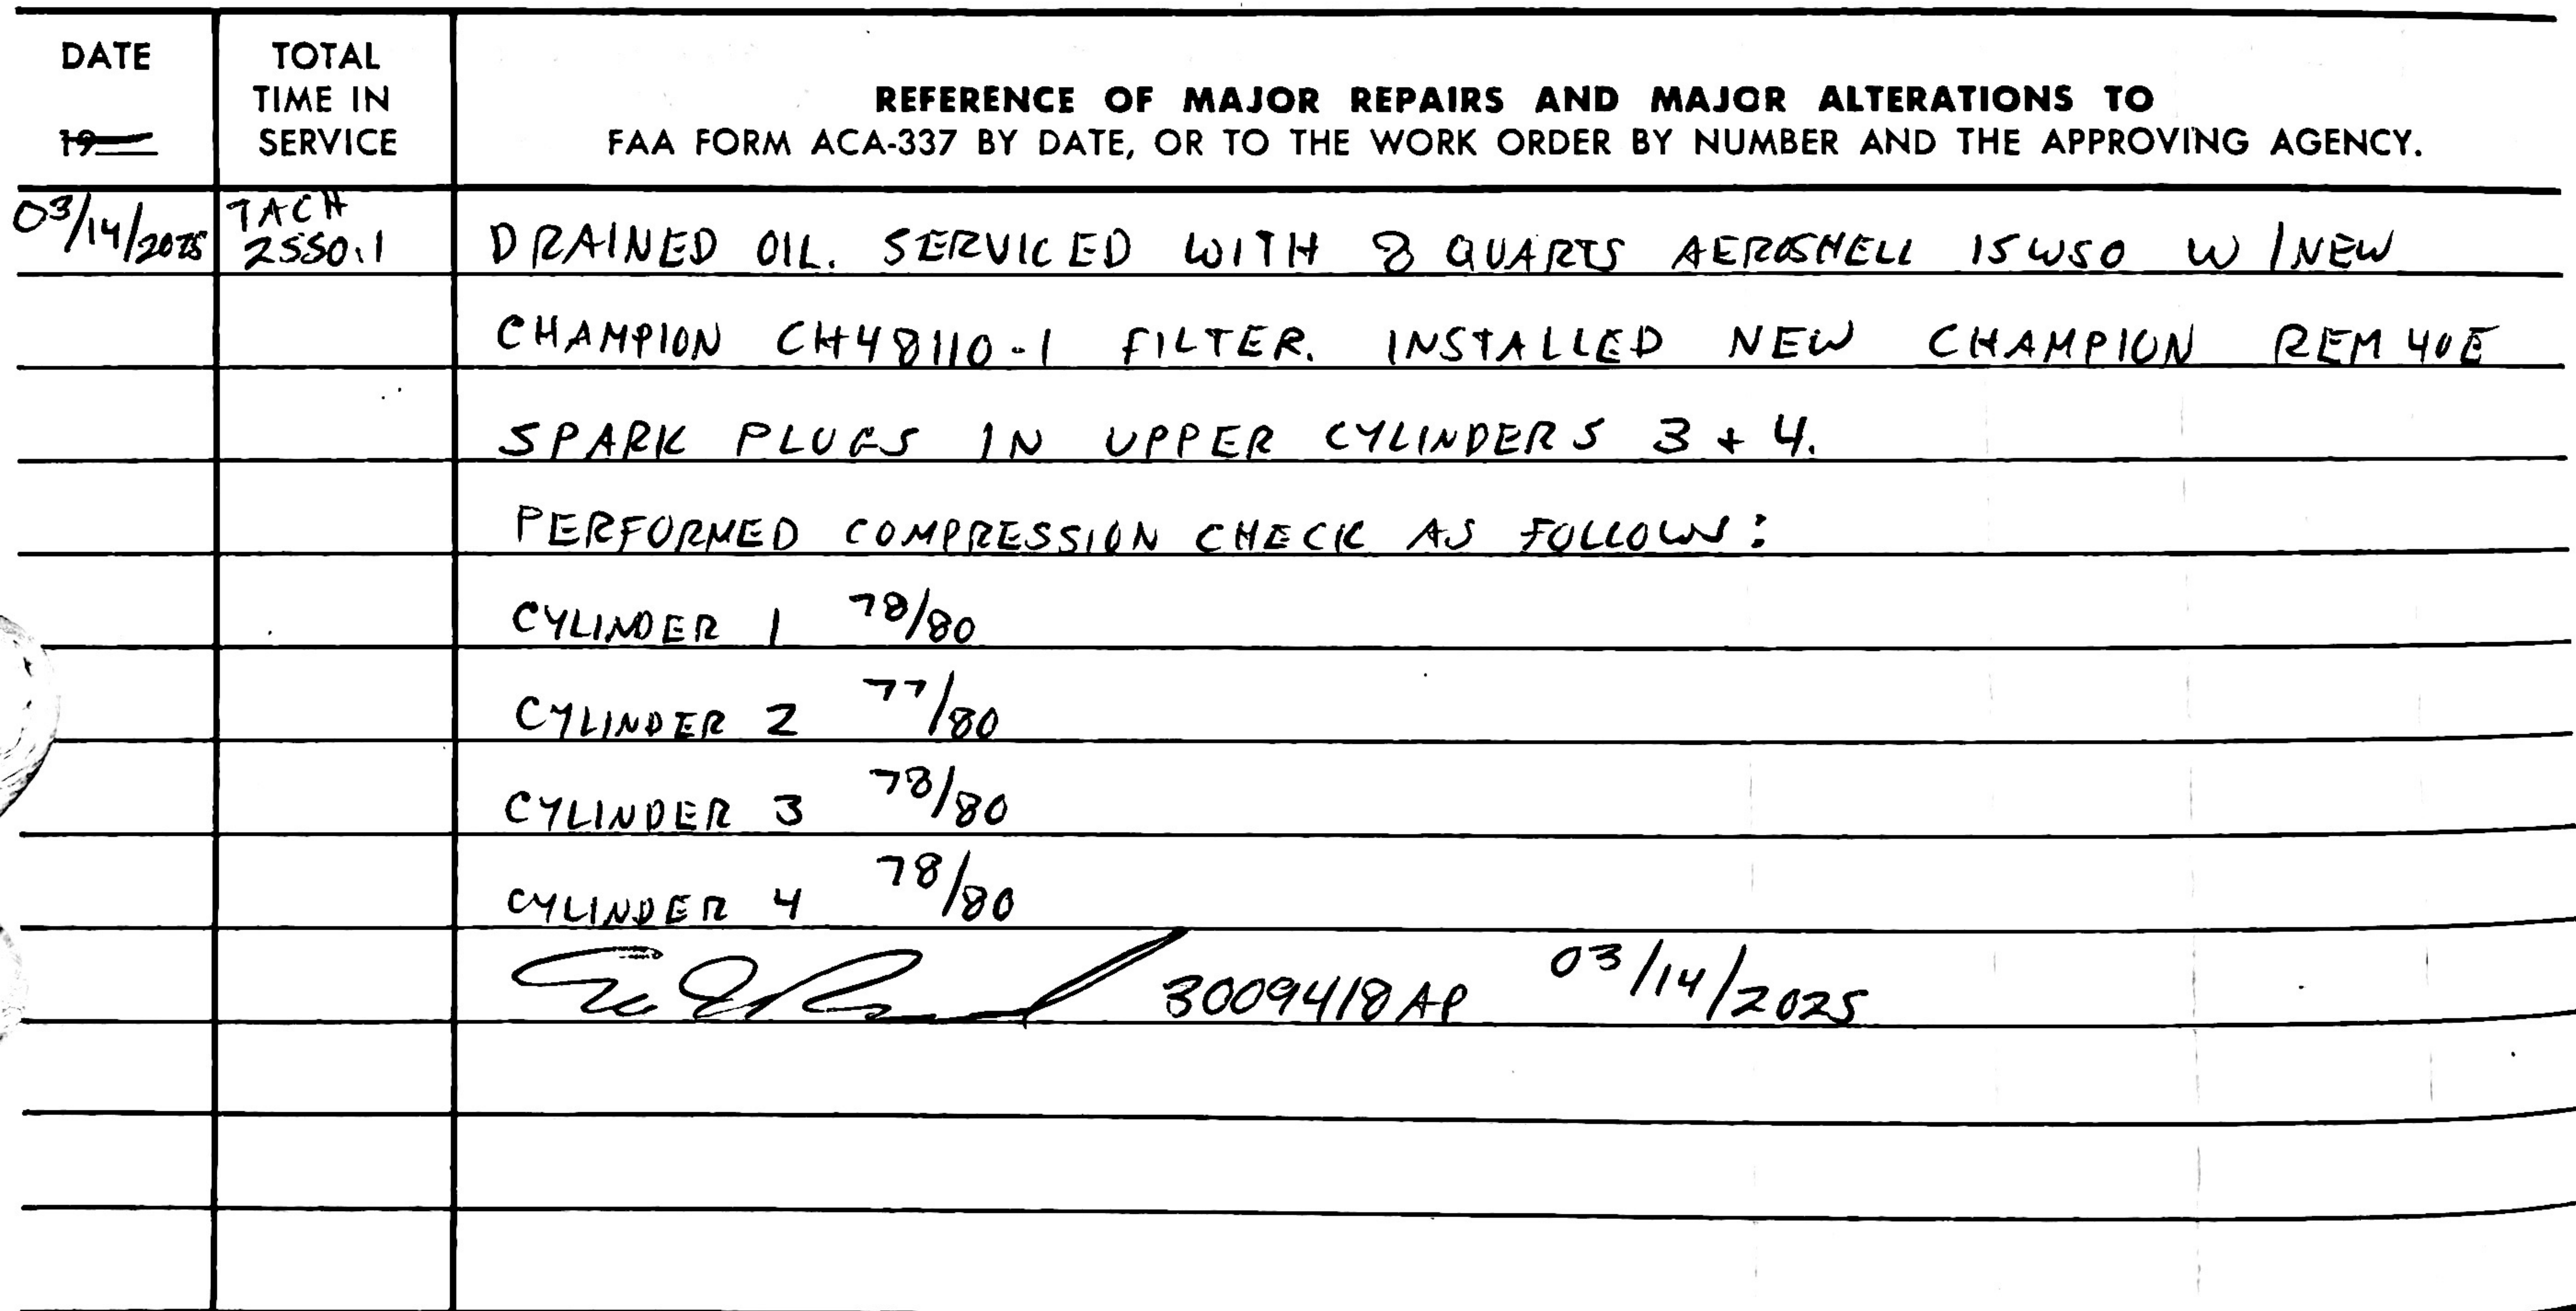 DATE
TOTAL
TIME IN
SERVICE
19
REFERENCE OF MAJOR REPAIRS AND MAJOR ALTERATIONS TO
FAA FORM ACA-337 BY DATE, OR TO THE WORK ORDER BY NUMBER AND THE APPROVING AGENCY.
03/14/2025 TACH
2550.1 DRAINED OIL. SERVICED WITH 8 QUARTS AEROSHELL 15W50 W/NEW
CHAMPION CH48110-1 FILTER. INSTALLED NEW CHAMPION REM 40E
SPARK PLUGS IN UPPER CYLINDERS 3 + 4.
PERFORMED COMPRESSION CHECK AS FOLLOWS:
CYLINDER 1 78/80
CYLINDER 2 77/80
CYLINDER 3 78/80
CYLINDER 4 78/80
3009418AP 03/14/2025